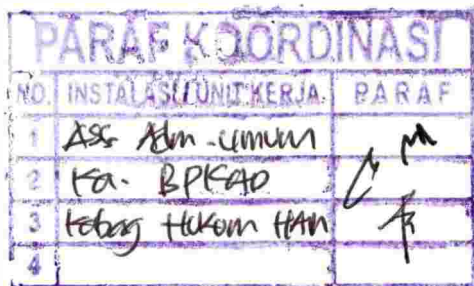 PARAF KOORDINASI
NO. INSTALASI/UNIT KERJA PARAF
1 Ass Adm-umum
2 Ka. BPKAD
3 Kabag Hukum HAM
4